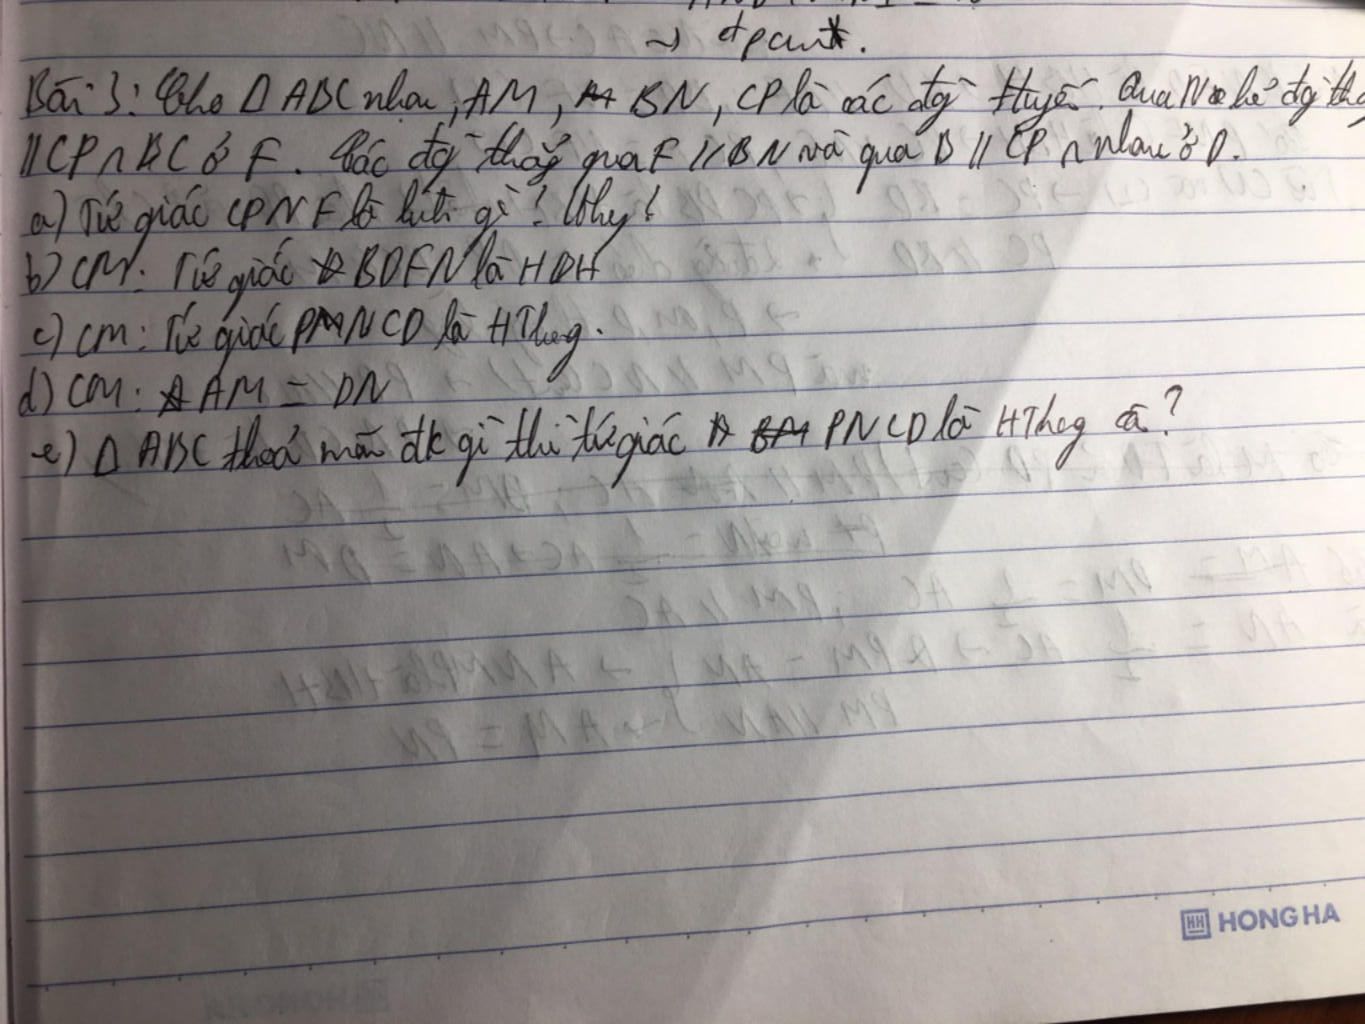 → đpcm.
Bài 3: Cho Δ ABC nhọn, AM, BN, CP là các đg̀ ttuyế. Qua N kẻ đg̀ thg
// CP ∩ BC ở F. Các đg̀ thẳg qua F // BN và qua B // CP ∩ nhau ở D.
a) Tứ giác CPNF là hìh gì? Why?
b) CM: Tứ giác BDFN là HBH
c) CM: Tứ giác PNCD là HThag.
d) CM: AM = DN
e) Δ ABC thoả mãn đk gì thì tứ giác PNCD là HThag câ?
HH HONG HA